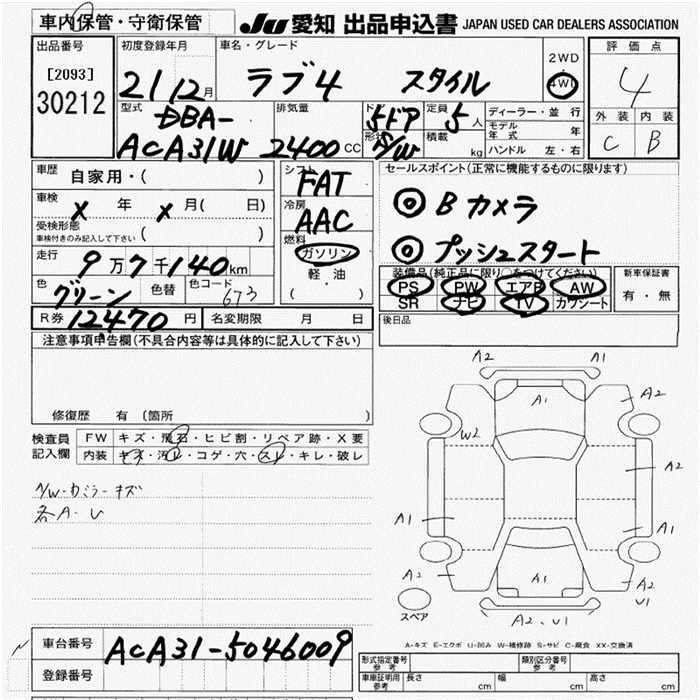 車内保管・守衛保管
JU 愛知 出品申込書 JAPAN USED CAR DEALERS ASSOCIATION
出品番号
[2093]
30212
初度登録年月
21 12月
車名・グレード
ラブ4 スタイル
2WD
4WD
評価点
4
外装 内装
C B
型式
DBA-
ACA31W
排気量
2400cc
ドア
5ドア
形状
S/W
定員
5人
積載
kg
ディーラー・並行
モデル年式 年
ハンドル 左・右
車歴
自家用・( )
車検
X 年 X 月( 日)
受検形態
車検付きのみ記入して下さい ( )
走行
9万7千140km
色
グリーン
色替
色コード
673
R券 12470円
名変期限 月 日
シフト
FAT
冷房
AAC
燃料
ガソリン
軽・油
( )
セールスポイント(正常に機能するものに限ります)
◎ Bカメラ
◎ プッシュスタート
装備品(純正品に限り○をつけてください)
PS PW エアB AW
SR ナビ TV カワシート
新車保証書
有・無
後日品
注意事項申告欄(不具合内容等は具体的に記入して下さい)
修復歴 有 (箇所 )
検査員記入欄
FW キズ・飛石・ヒビ割・リペア跡・X要
内装 キズ・汚レ・コゲ・穴・スレ・キレ・破レ
各A-U
A2 A1
A1
A2
W2
A2
A1
A1
A2
A1
A2
U1
スペア
A2、U1
A-キズ E-エクボ U-凹み W-補修跡 S-サビ C-腐食 XX-交換済
車台番号
ACA31-5046009
登録番号
形式指定番号
参考
類別区分番号
参考
車庫証明用
参考
長さ cm 幅 cm 高さ cm